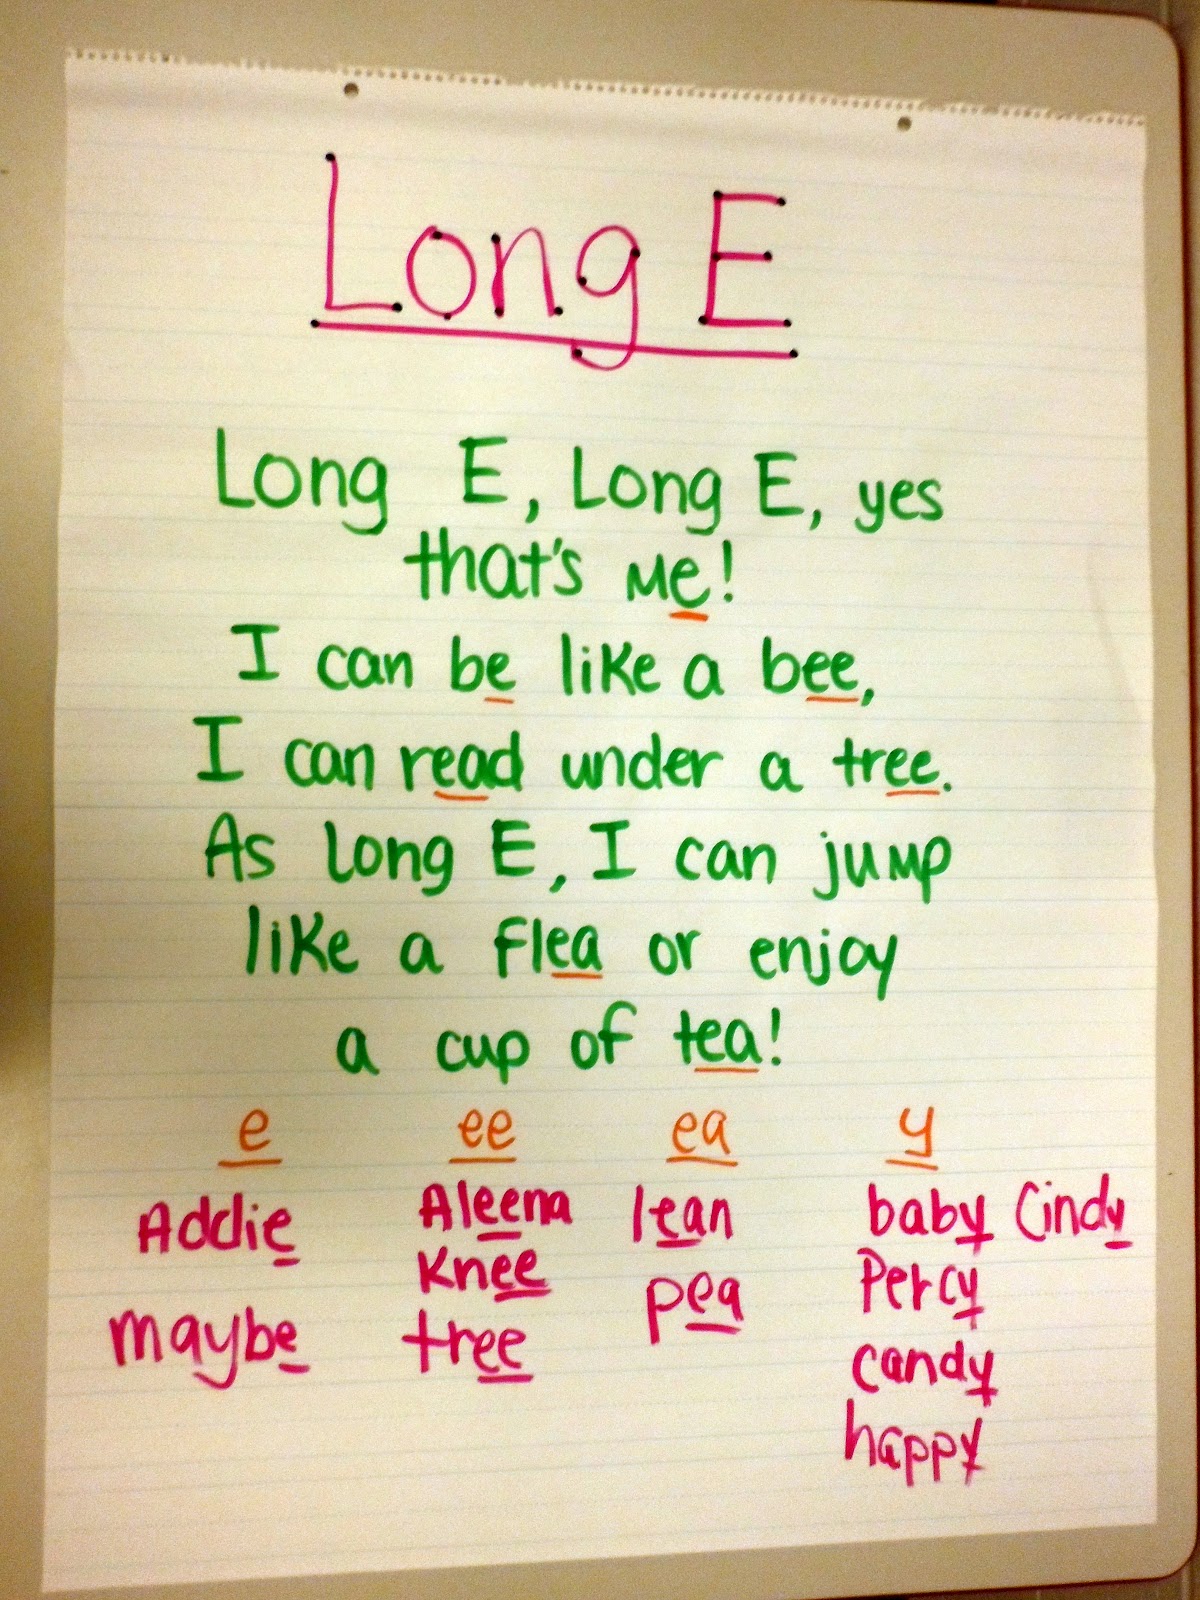 Long E
Long E, Long E, yes
that's me!
I can be like a bee,
I can read under a tree.
As long E, I can jump
like a flea or enjoy
a cup of tea!
e ee ea y
Addie Aleena lean baby Cindy
maybe knee pea Percy
tree candy
happy